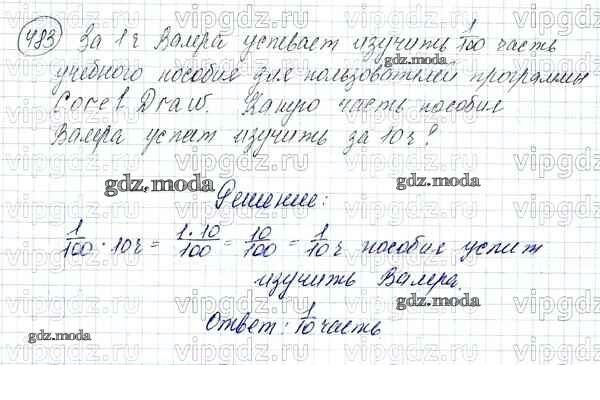 483 За 1 ч Валера успевает изучить 1/100 часть
учебного пособия для пользователей программы
Corel Draw. Какую часть пособия
Валера успеет изучить за 10 ч?
Решение:
1/100 · 10 ч = 1·10/100 = 10/100 = 1/10 ч пособия успит
изучить Валера.
Ответ: 1/10 часть
gdz.moda
gdz.moda
gdz.moda
gdz.moda
gdz.moda
gdz.moda